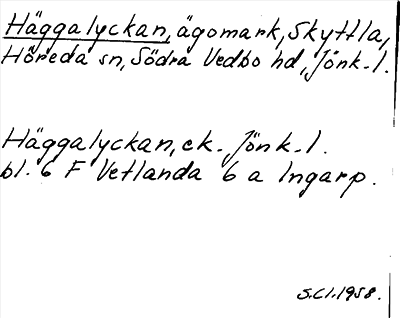 Häggalyckan, ägomark, Skyttla,
Höreda sn, Södra Vedbo hd, Jönk. l.
Häggalyckan, ek. Jönk. l.
bl. 6 F Vetlanda 6 a Ingarp.
S.Cl. 1958.